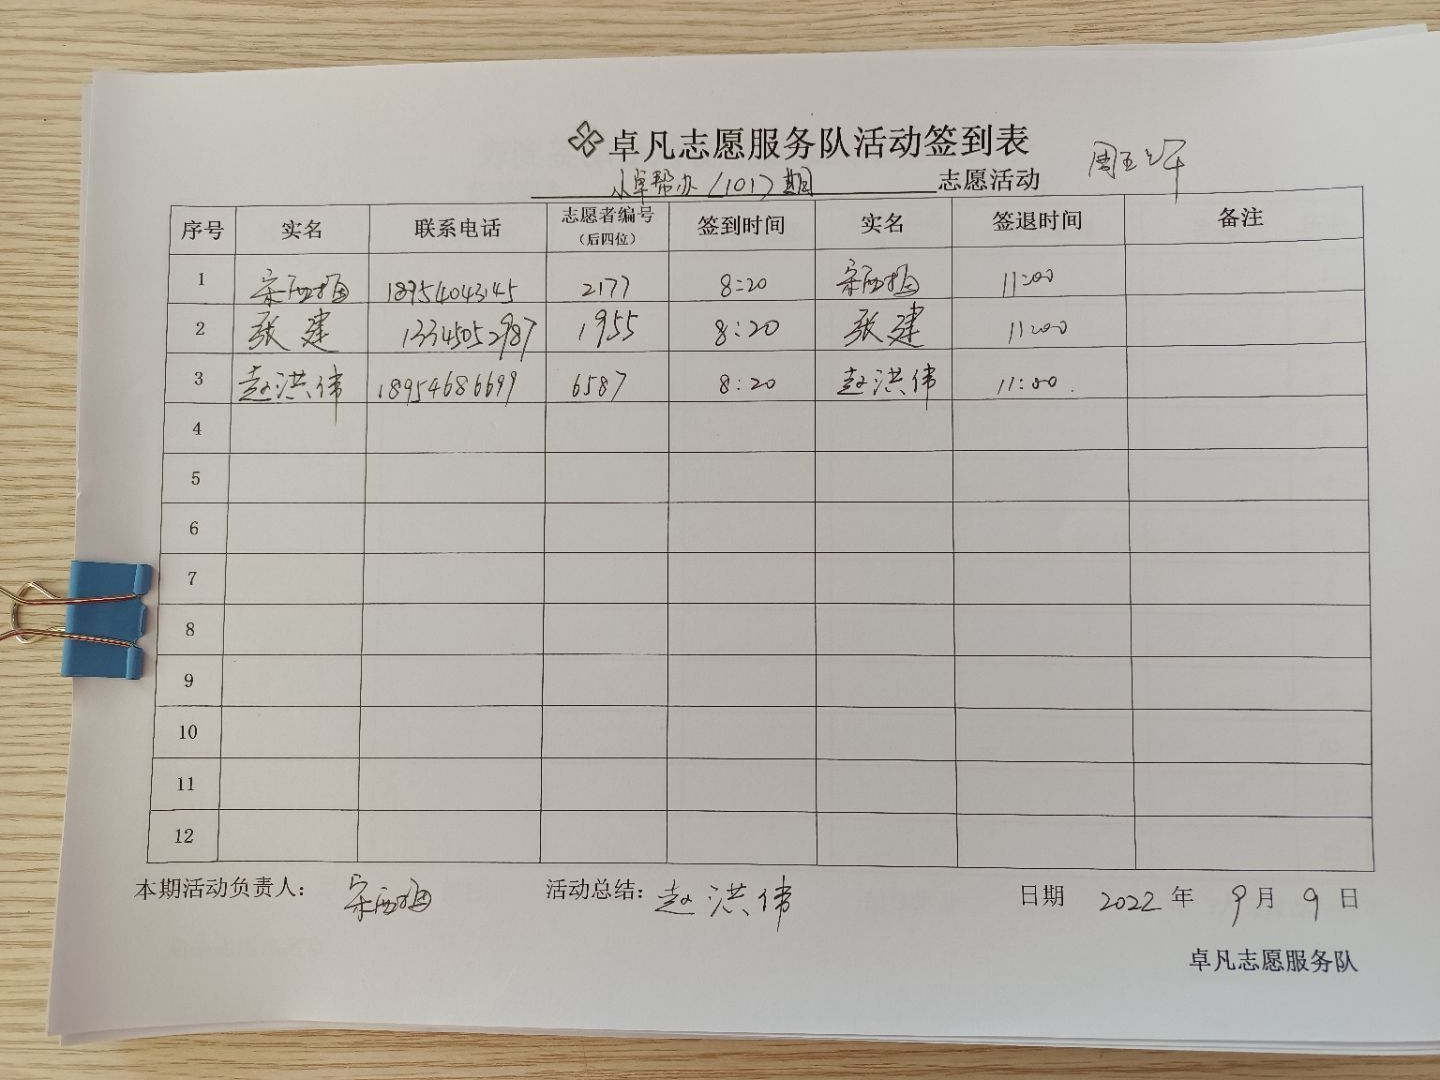 卓凡志愿服务队活动签到表
周五上午
小卓帮办（101）期 志愿活动
序号 实名 联系电话 志愿者编号（后四位） 签到时间 实名 签退时间 备注
1 宋西梅 18954043145 2177 8:20 宋西梅 11:00
2 张建 13345052987 1955 8:20 张建 11:00
3 赵洪伟 18954686699 6587 8:20 赵洪伟 11:00
4
5
6
7
8
9
10
11
12
本期活动负责人： 宋西梅 活动总结： 赵洪伟 日期 2022 年 9 月 9 日
卓凡志愿服务队